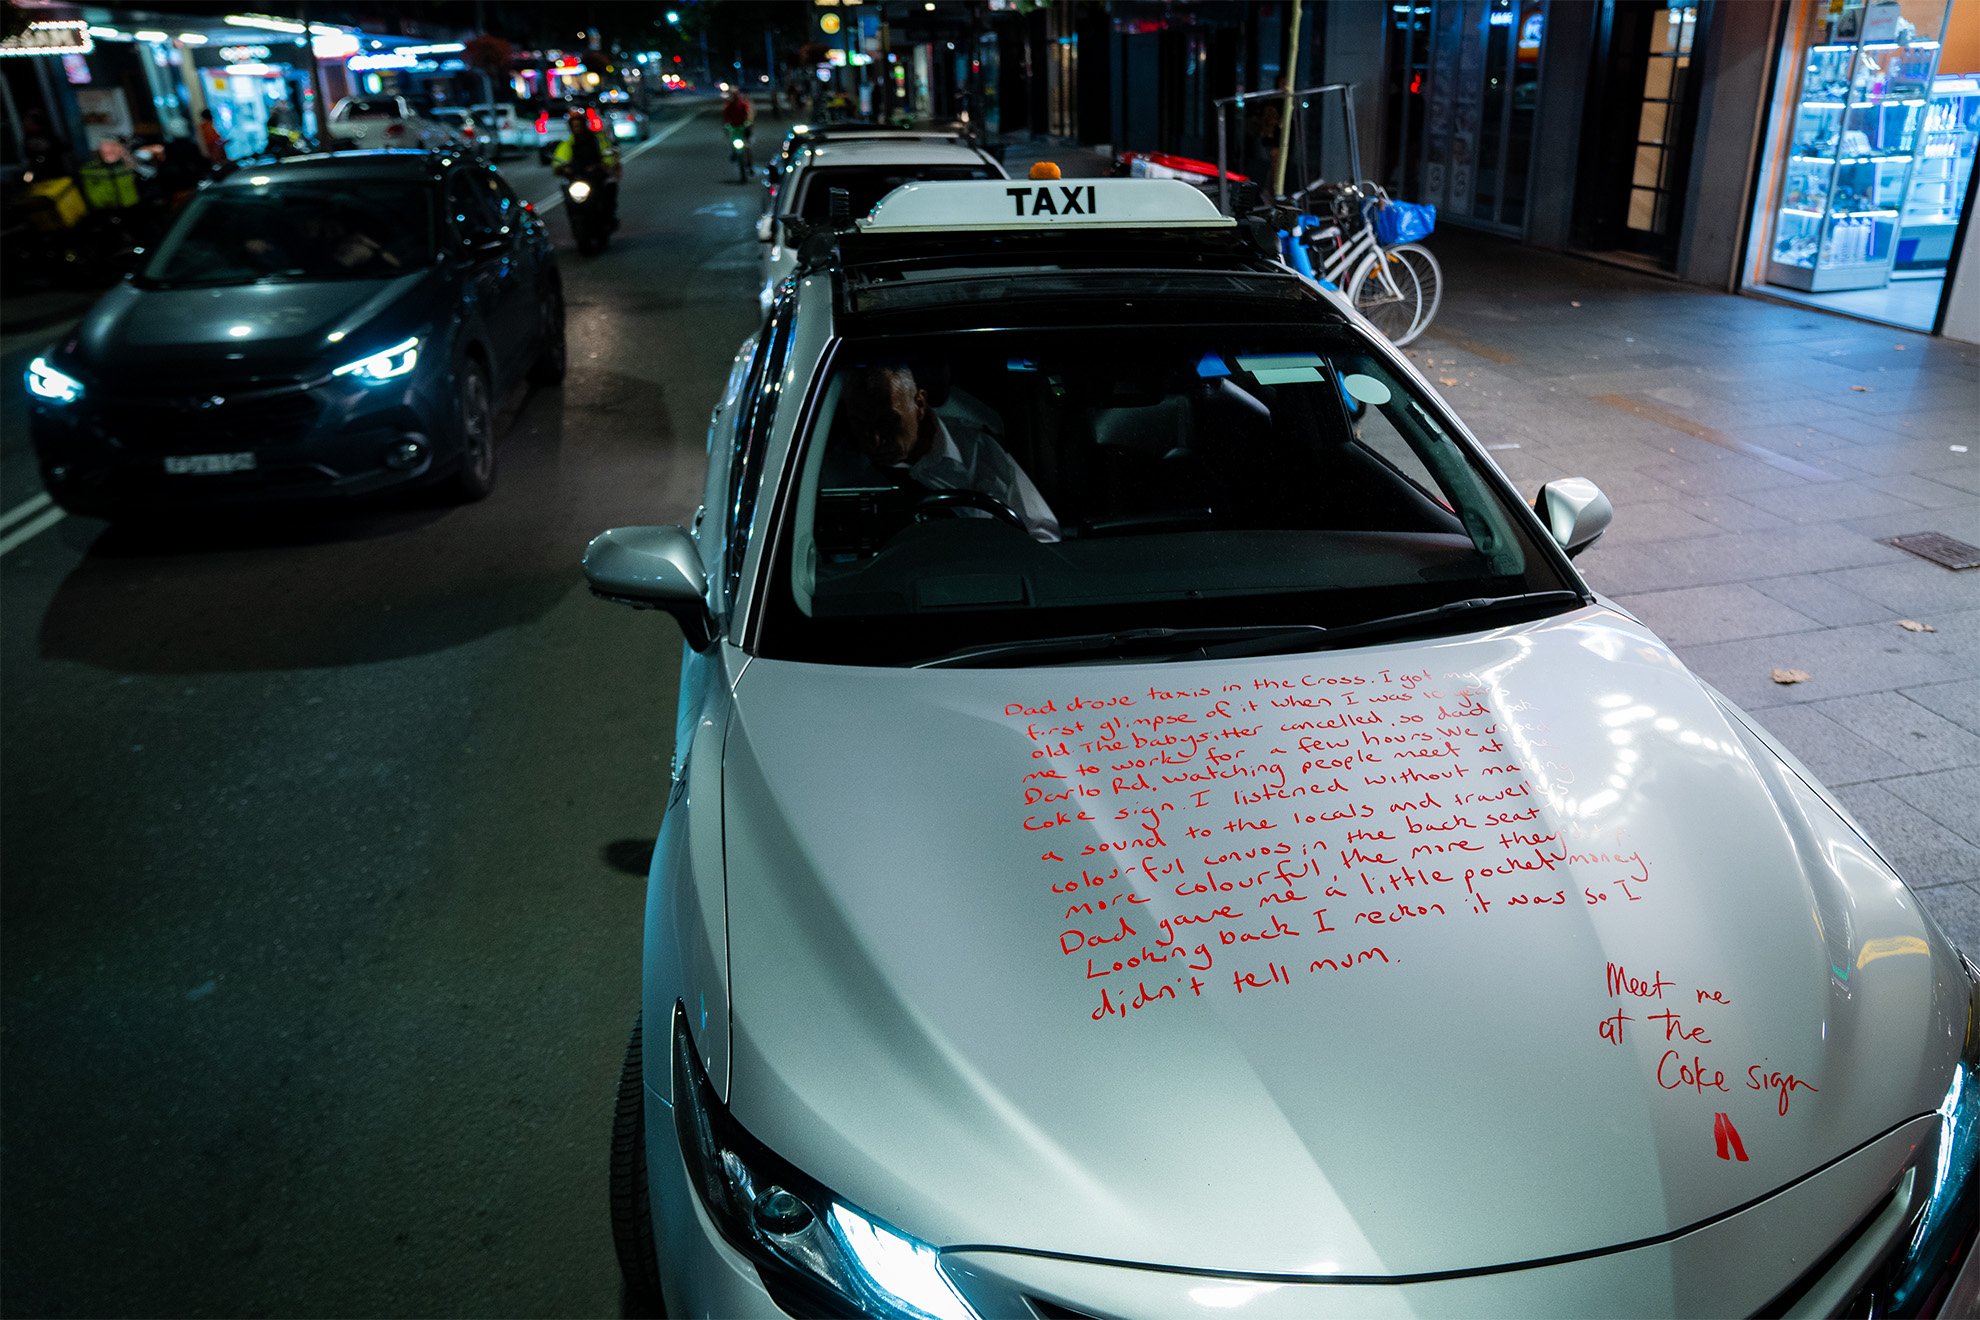 TAXI
Dad drove taxis in the Cross. I got my
first glimpse of it when I was 10 years
old The babysitter cancelled, so dad took
me to work for a few hours. We cruised
Darlo Rd, watching people meet at the
Coke sign. I listened without making
a sound to the locals and travellers
colourful convos in the back seat
more colourful, the more they'd
Dad gave me a little pocket money.
Looking back I reckon it was so I
didn't tell mum.
Meet me
at the
Coke sign